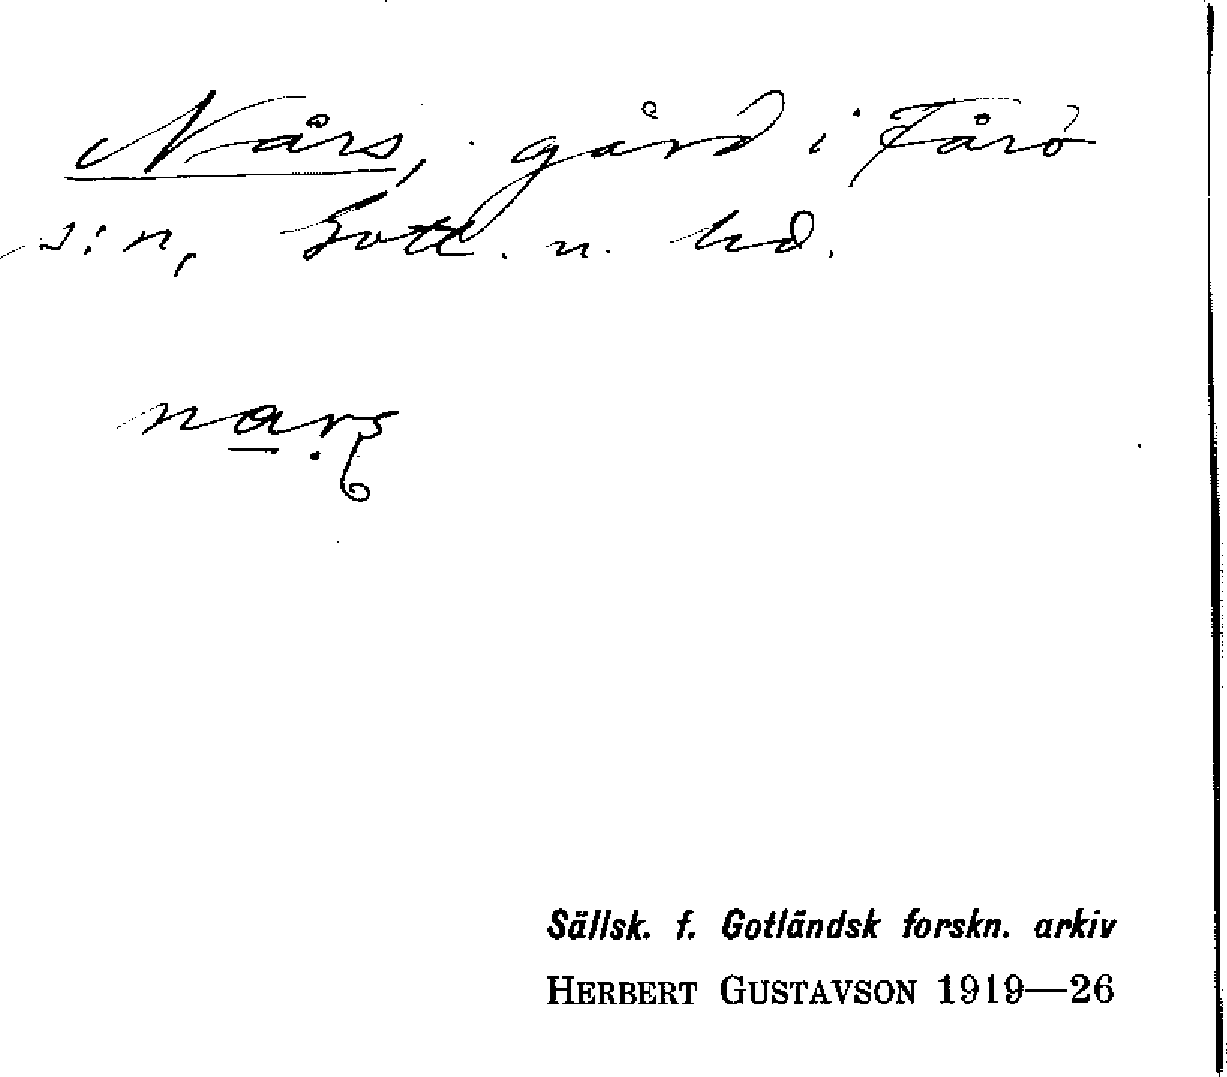 Nårs, gård i Fårö
s:n, Gotl. n. hd.
nars
Sällsk. f. Gotländsk forskn. arkiv
HERBERT GUSTAVSON 1919—26